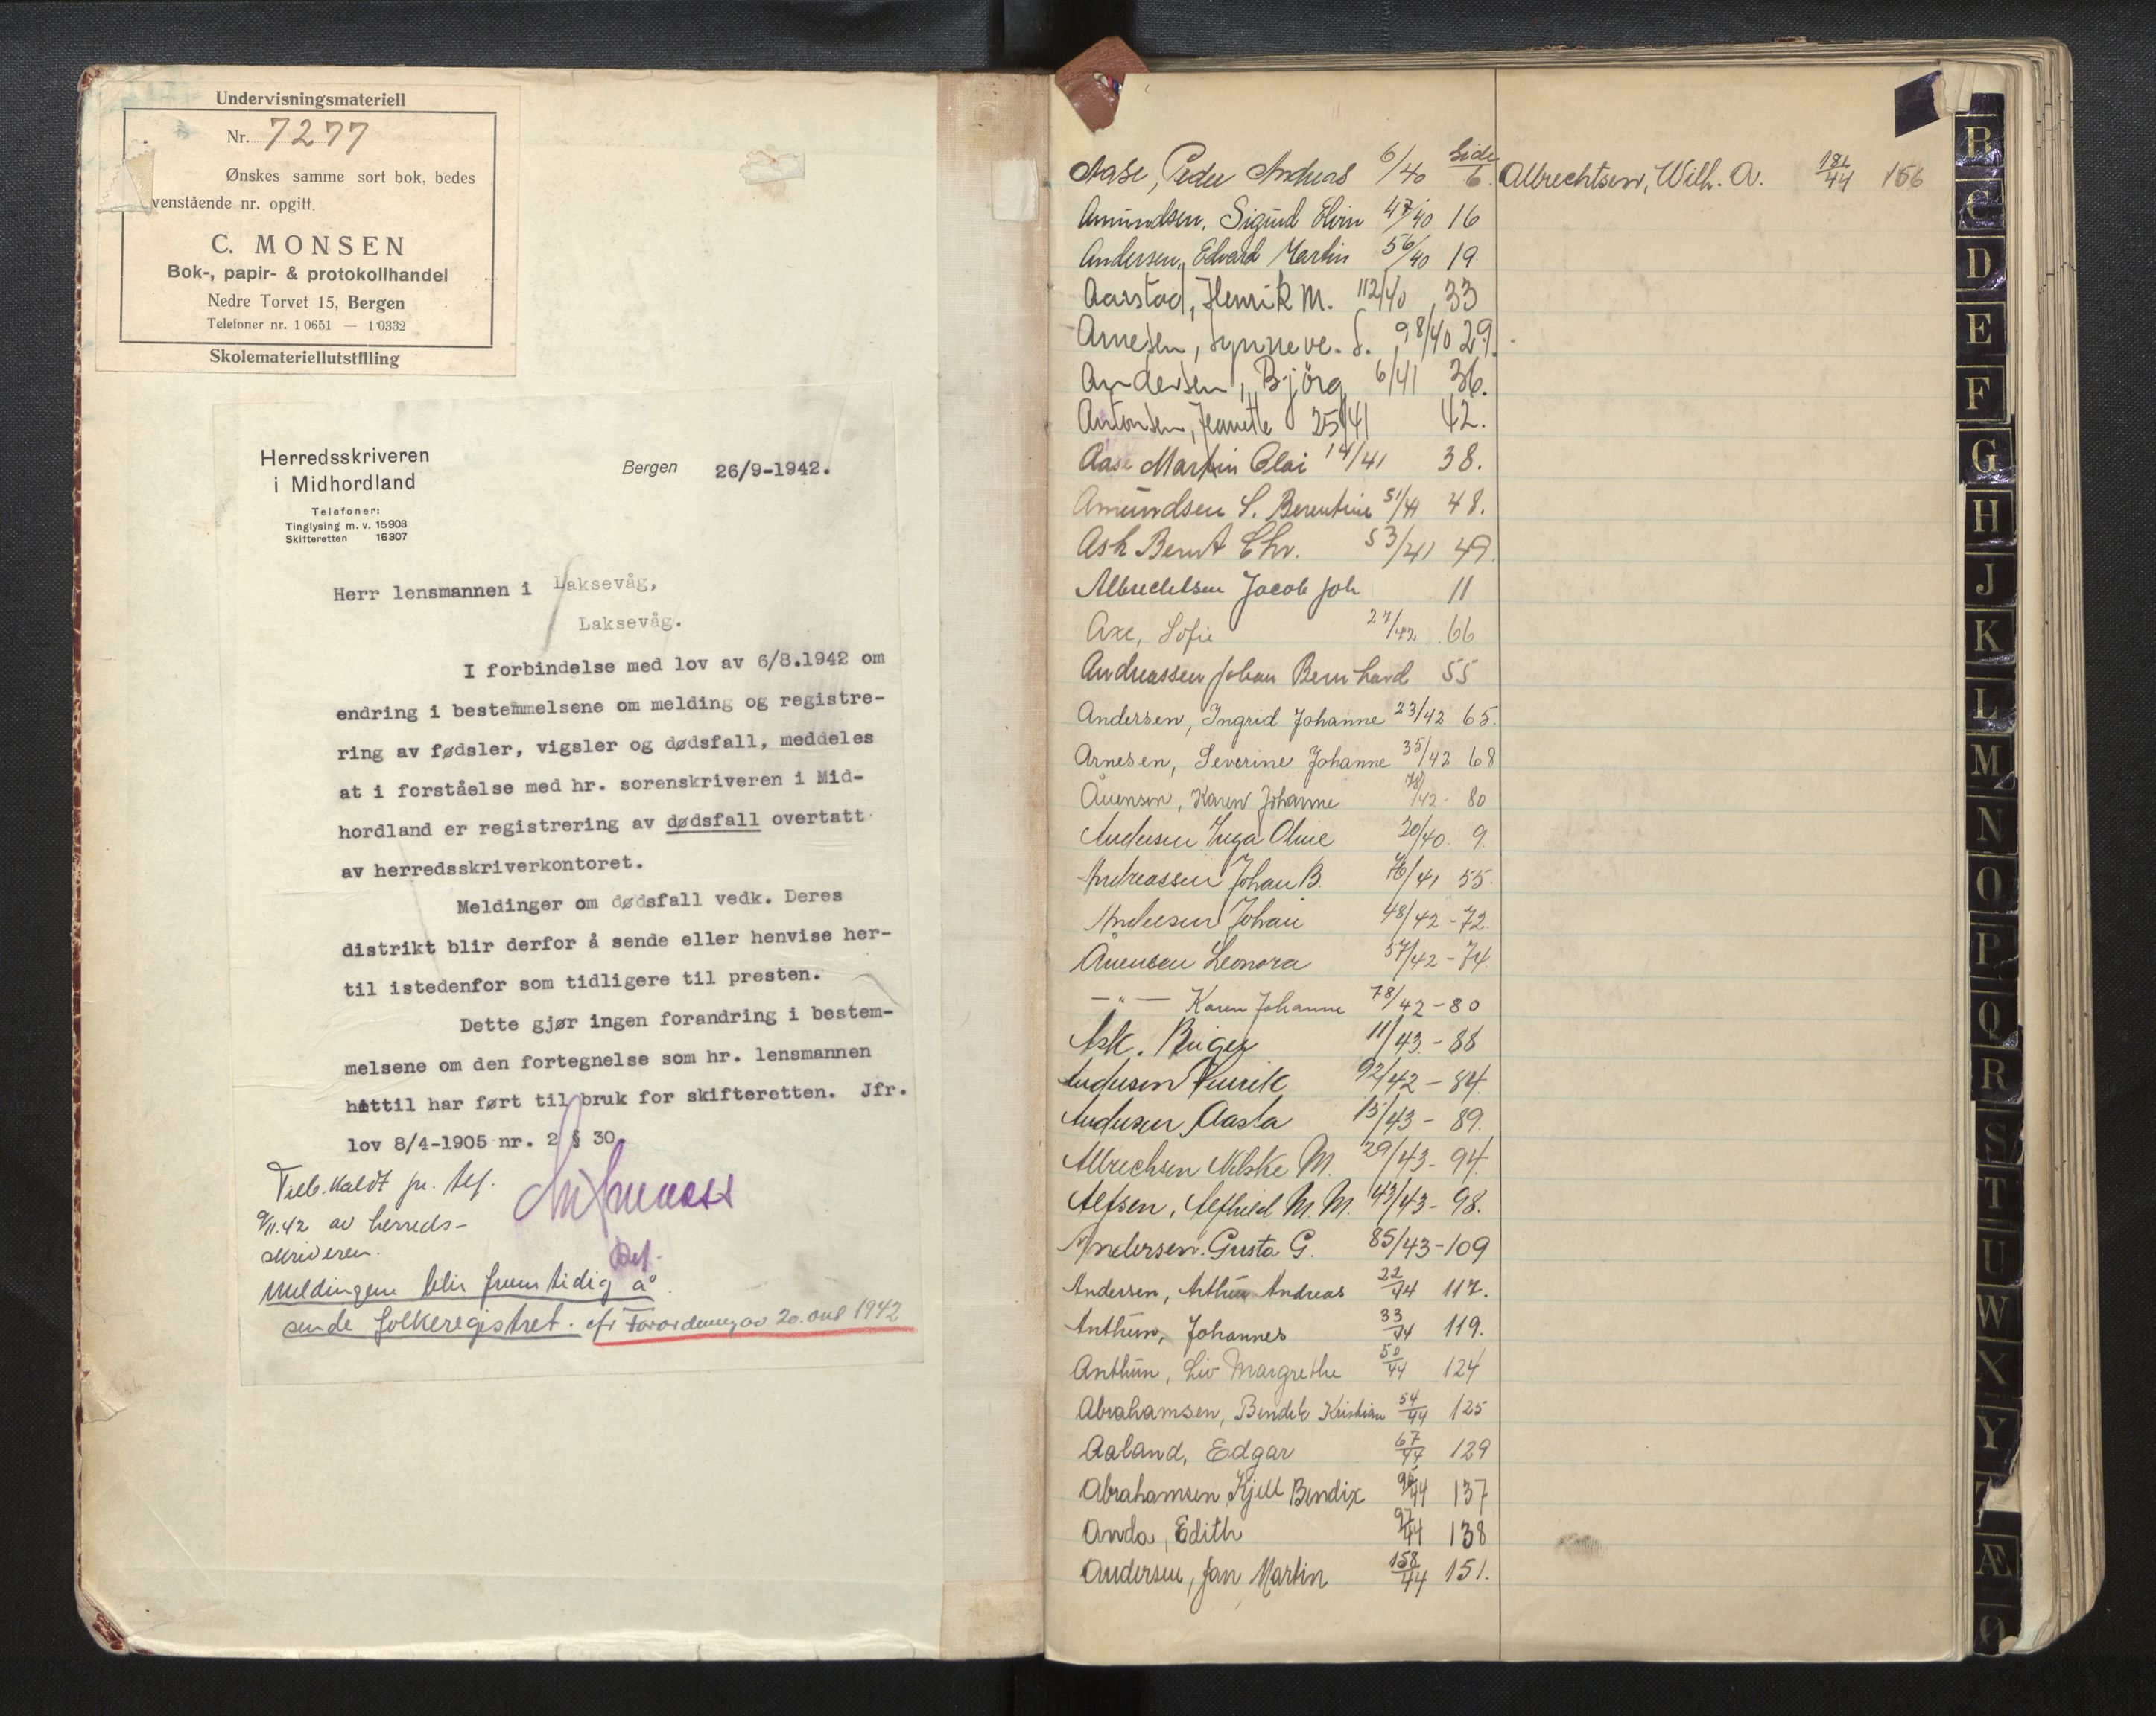 Undervisningsmateriell
Nr. 7277
Ønskes samme sort bok, bedes
venstående nr. opgitt.
C. MONSEN
Bok-, papir- & protokollhandel
Nedre Torvet 15, Bergen
Telefoner nr. 10651 — 10332
Skolemateriellutstilling
Herredsskriveren
i Midhordland
Telefoner:
Tinglysing m. v. 15903
Skifteretten 16307
Bergen 26/9-1942.
Herr lensmannen i Laksevåg,
Laksevåg.
I forbindelse med lov av 6/8.1942 om
endring i bestemmelsene om melding og registre-
ring av fødsler, vigsler og dødsfall, meddeles
at i forståelse med hr. sorenskriveren i Mid-
hordland er registrering av dødsfall overtatt
av herredsskriverkontoret.
Meldinger om dødsfall vedk. Deres
distrikt blir derfor å sende eller henvise her-
til istedenfor som tidligere til presten.
Dette gjør ingen forandring i bestem-
melsene om den fortegnelse som hr. lensmannen
hittil har ført til bruk for skifteretten. Jfr.
lov 8/4-1905 nr. 2 § 30.
Tilb.kaldt pr. tlf.
9/11.42 av herreds-
skriveren.
Meldingene blir fremtidig å
sende folkeregistret. cfr Forordning av 20. aug 1942
Aase, Peder Andreas 6/40 Side 6.
Amundsen, Sigurd Elvin 47/40 16
Andersen, Edvard Martin 56/40 19.
Aarstad, Henrik M. 112/40 33
Arnesen, Synneve. S. 98/40 29.
Andersen, Bjørg 6/41 36.
Antonsen, Jeanette 25/41 42.
Aase Martin Olai 14/41 38.
Amundsen S. Berentine 51/41 48.
Ask Bernt Chr. 53/41 49.
Albrechtsen Jacob Joh 11
Axe, Sofie 27/42 66
Andreassen Johan Bernhard 55
Andersen, Ingrid Johanne 23/42 65.
Arnesen, Severine Johanne 35/42 68
Åuensen, Karen Johanne 78/42 - 80
Andersen Inga Oline 20/40 9.
Andreassen Johan B. 76/41 55.
Andersen Johan 48/42 - 72.
Åuensen Leonora 57/42 - 74.
— " — Karen Johanne 78/42 - 80
Ask. Birger 11/43. - 88
Andersen Henrik 92/42 - 84.
Andersen Aasta 15/43 - 89.
Albrechsen Milske M. 29/43 - 94.
Alfsen, Alfhild M. M. 43/43 - 98.
Andersen. Gusta G. 85/43 - 109
Andersen, Arthur Andreas 22/44 117.
Anthun, Johannes 33/44 119.
Anthun, Liv Margrethe 50/44 124
Abrahamsen, Bendik Kristian 54/44 125
Aaland, Edgar 67/44 129
Abrahamsen, Kjell Bendix 95/44 137
Anda, Edith 97/44 138
Andersen, Jan Martin 158/44 151.
Albrechtsen, Wilh. A. 181/44 156
B
C
D
E
F
G
H
J
K
L
M
N
O
P
Q
R
S
T
U
W
X
Y
Æ
Ø